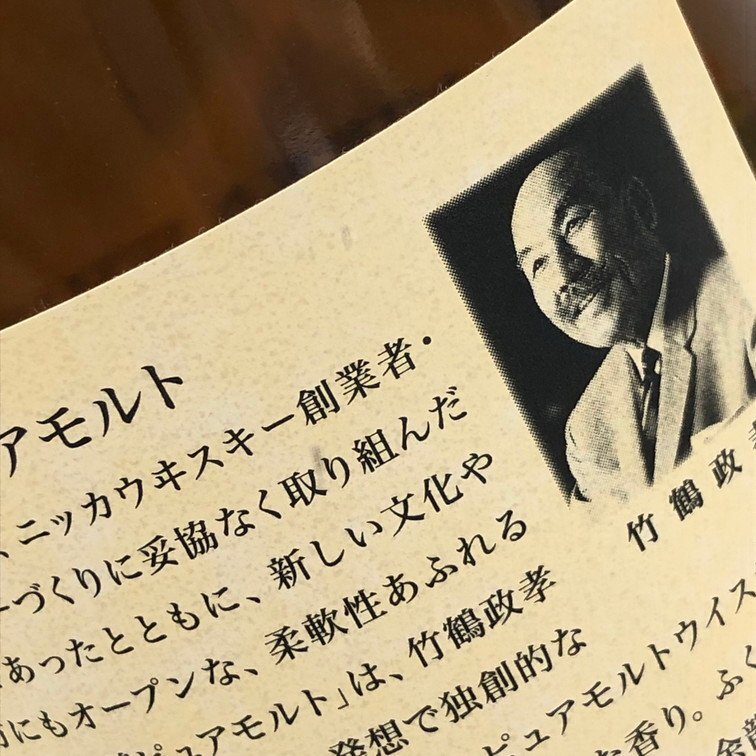 アモルト
、ニッカウヰスキー創業者・
ーづくりに妥協なく取り組んだ
あったとともに、新しい文化や
にもオープンな、柔軟性あふれる
ピュアモルト」は、竹鶴政孝
発想で独創的な
ピュアモルトウイス
香り。ふく
竹鶴政孝